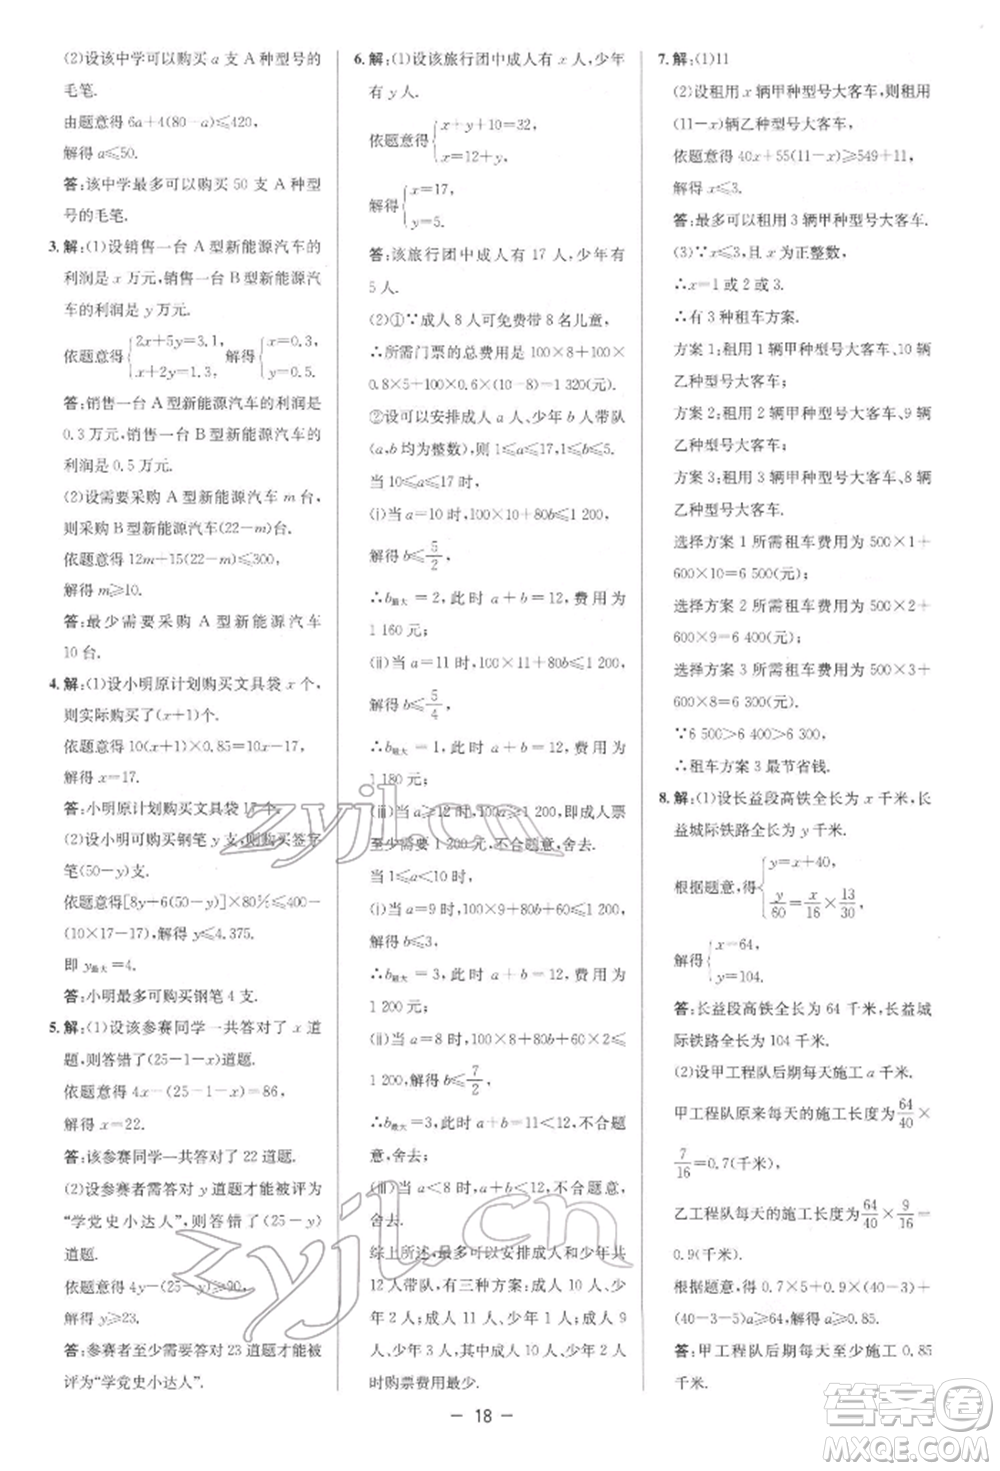 (2)设该中学可以购买 a 支 A 种型号的
毛笔.
由题意得 6a+4(80-a)≤420,
解得 a≤50.
答:该中学最多可以购买 50 支 A 种型
号的毛笔.
3.解:(1)设销售一台 A 型新能源汽车的
利润是 x 万元,销售一台 B 型新能源汽
车的利润是 y 万元.
依题意得{2x+5y=3.1, x+2y=1.3, 解得{x=0.3, y=0.5.
答:销售一台 A 型新能源汽车的利润是
0.3 万元,销售一台 B 型新能源汽车的
利润是 0.5 万元.
(2)设需要采购 A 型新能源汽车 m 台,
则采购 B 型新能源汽车(22-m)台.
依题意得 12m+15(22-m)≤300,
解得 m≥10.
答:最少需要采购 A 型新能源汽车
10 台.
4.解:(1)设小明原计划购买文具袋 x 个,
则实际购买了(x+1)个.
依题意得 10(x+1)×0.85=10x-17,
解得 x=17.
答:小明原计划购买文具袋 17 个.
(2)设小明可购买钢笔 y 支,则购买签字
笔(50-y)支.
依题意得[8y+6(50-y)]×80%≤400-
(10×17-17),解得 y≤4.375.
即 y最大=4.
答:小明最多可购买钢笔 4 支.
5.解:(1)设该参赛同学一共答对了 x 道
题,则答错了(25-1-x)道题.
依题意得 4x-(25-1-x)=86,
解得 x=22.
答:该参赛同学一共答对了 22 道题.
(2)设参赛者需答对 y 道题才能被评为
“学党史小达人”,则答错了(25-y)道
题.
依题意得 4y-(25-y)≥90,
解得 y≥23.
答:参赛者至少需答对 23 道题才能被
评为“学党史小达人”.
6.解:(1)设该旅行团中成人有 x 人,少年
有 y 人.
依题意得{x+y+10=32, x=12+y,
解得{x=17, y=5.
答:该旅行团中成人有 17 人,少年有
5 人.
(2)①∵成人 8 人可免费带 8 名儿童,
∴所需门票的总费用是 100×8+100×
0.8×5+100×0.6×(10-8)=1 320(元).
②设可以安排成人 a 人、少年 b 人带队
(a,b 均为整数),则 1≤a≤17,1≤b≤5.
当 10≤a≤17 时,
(ⅰ)当 a=10 时,100×10+80b≤1 200,
解得 b≤5/2,
∴b最大=2,此时 a+b=12,费用为
1 160 元;
(ⅱ)当 a=11 时,100×11+80b≤1 200,
解得 b≤5/4,
∴b最大=1,此时 a+b=12,费用为
1 180 元;
(ⅲ)当 a≥12 时,100a≥1 200,即成人票
至少需要 1 200 元,不合题意,舍去.
当 1≤a<10 时,
(ⅰ)当 a=9 时,100×9+80b≤1 200,
解得 b≤3,
∴b最大=3,此时 a+b=12,费用为
1 200 元;
(ⅱ)当 a=8 时,100×8+80b+100×0.6≤
1 200,解得 b≤7/2,
∴b最大=3,此时 a+b=11<12,不合题
意,舍去;
(ⅲ)当 a<8 时,a+b<12,不合题意,
舍去.
综上所述,最多可以安排成人和少年共
12 人带队,有三种方案:成人 10 人、少
年 2 人;成人 11 人、少年 1 人;成人
9 人、少年 3 人,其中成人 10 人、少年 2 人
时购票费用最少.
7.解:(1)11
(2)设租用 x 辆甲种型号大客车,则租用
(11-x)辆乙种型号大客车.
依题意得 40x+55(11-x)≥549+11,
解得 x≤3.
答:最多可以租用 3 辆甲种型号大客车.
(3)∵x≤3,且 x 为正整数,
∴x=1 或 2 或 3.
∴有 3 种租车方案.
方案 1:租用 1 辆甲种型号大客车、10 辆
乙种型号大客车;
方案 2:租用 2 辆甲种型号大客车、9 辆
乙种型号大客车;
方案 3:租用 3 辆甲种型号大客车、8 辆
乙种型号大客车.
选择方案 1 所需租车费用为 500×1+
600×10=6 500(元);
选择方案 2 所需租车费用为 500×2+
600×9=6 400(元);
选择方案 3 所需租车费用为 500×3+
600×8=6 300(元).
∵6 500>6 400>6 300,
∴租车方案 3 最节省钱.
8.解:(1)设长益段高铁全长为 x 千米,长
益城际铁路全长为 y 千米.
根据题意,得{y=x+40, y/80=x/16×13/30,
解得{x=64, y=104.
答:长益段高铁全长为 64 千米,长益城
际铁路全长为 104 千米.
(2)设甲工程队后期每天施工 a 千米.
甲工程队原来每天的施工长度为 64/40×
7/16=0.7(千米),
乙工程队每天的施工长度为 64/40×9/16=
0.9(千米).
根据题意,得 0.7×5+0.9×(40-3)+
(40-3-5)a≥64,解得 a≥0.85.
答:甲工程队后期每天至少施工 0.85
千米.
- 18 -
zyjl.cn
zyjl.cn
答案圈
MXQE.COM